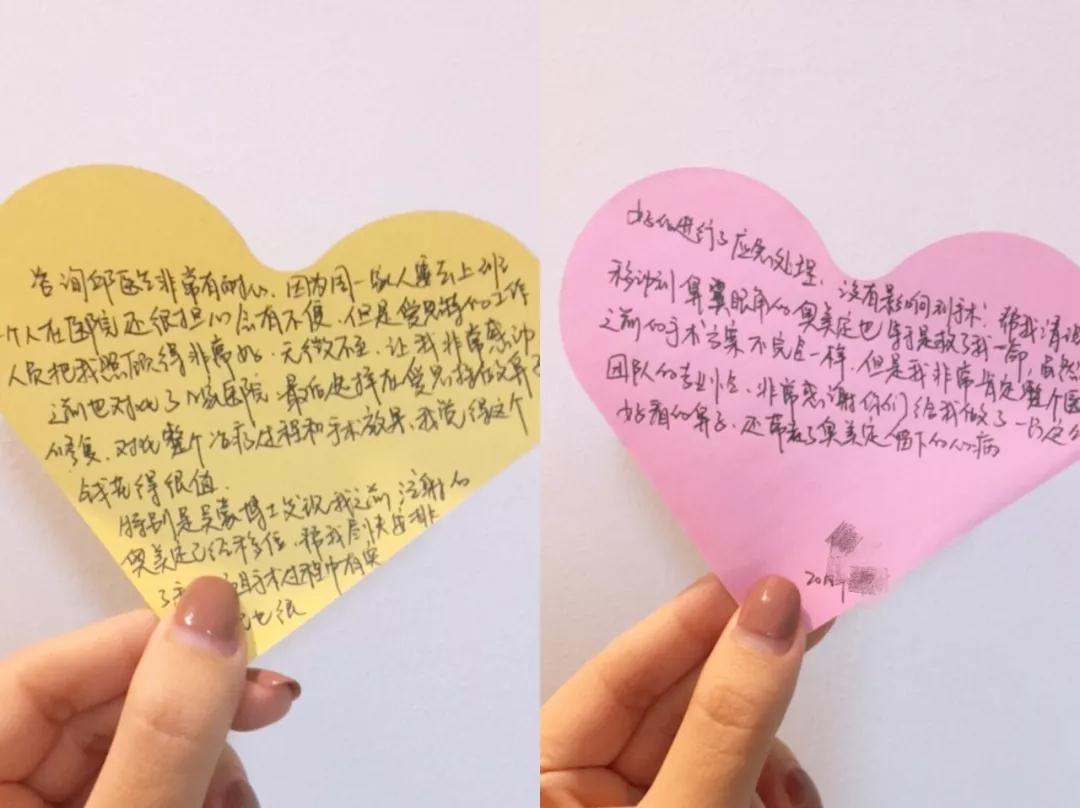 咨询邱医生非常有耐心,因为周一家人要去上班
一个人在医院还很担心会有不便,但是爱思特的工作
人员把我照顾得非常好,无微不至,让我非常感动
之前也对比了几家医院,最后选择在爱思特做鼻子
的修复,对比整个治疗过程和手术效果,我觉得这个
钱花得很值.
特别是吴蒙博士发现我之前注射的
奥美定已经移位,帮我尽快安排
了手 手术过程中有奥
也很
好的进行了应急处理,没有影响到手术,帮我清理
移动到鼻翼眼角的奥美定也等于是救了我一命,虽然
之前的手术方案不完全一样,但是我非常肯定整个医
团队的专业性,非常感谢你们给我做了一个这么
好看的鼻子,还带走了奥美定留下的心病